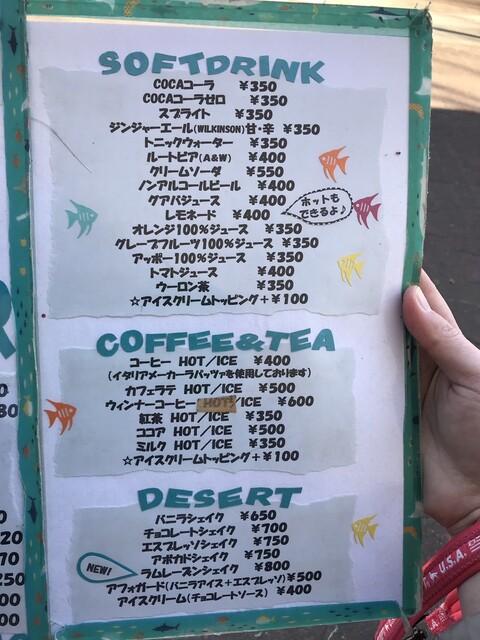 SOFTDRINK
COCAコーラ ¥350
COCAコーラゼロ ¥350
スプライト ¥350
ジンジャーエール(WILKINSON)甘・辛 ¥350
トニックウォーター ¥350
ルートビア(A&W) ¥400
クリームソーダ ¥550
ノンアルコールビール ¥400
グアバジュース ¥400
レモネード ¥400
ホットも
できるよ♪
オレンジ100%ジュース ¥350
グレープフルーツ100%ジュース ¥350
アッポー100%ジュース ¥350
トマトジュース ¥400
ウーロン茶 ¥350
☆アイスクリームトッピング+¥100
COFFEE&TEA
コーヒー HOT/ICE ¥400
(イタリアメーカーラバッツァを使用しております)
カフェラテ HOT/ICE ¥500
ウィンナーコーヒー HOT/ICE ¥600
紅茶 HOT/ICE ¥350
ココア HOT/ICE ¥500
ミルク HOT/ICE ¥350
☆アイスクリームトッピング+¥100
DESERT
バニラシェイク ¥650
チョコレートシェイク ¥700
エスプレッソシェイク ¥750
アボカドシェイク ¥750
NEW!
ラムレーズンシェイク ¥800
アフォガード(バニラアイス+エスプレッソ)¥500
アイスクリーム(チョコレートソース) ¥400
U.S.A.